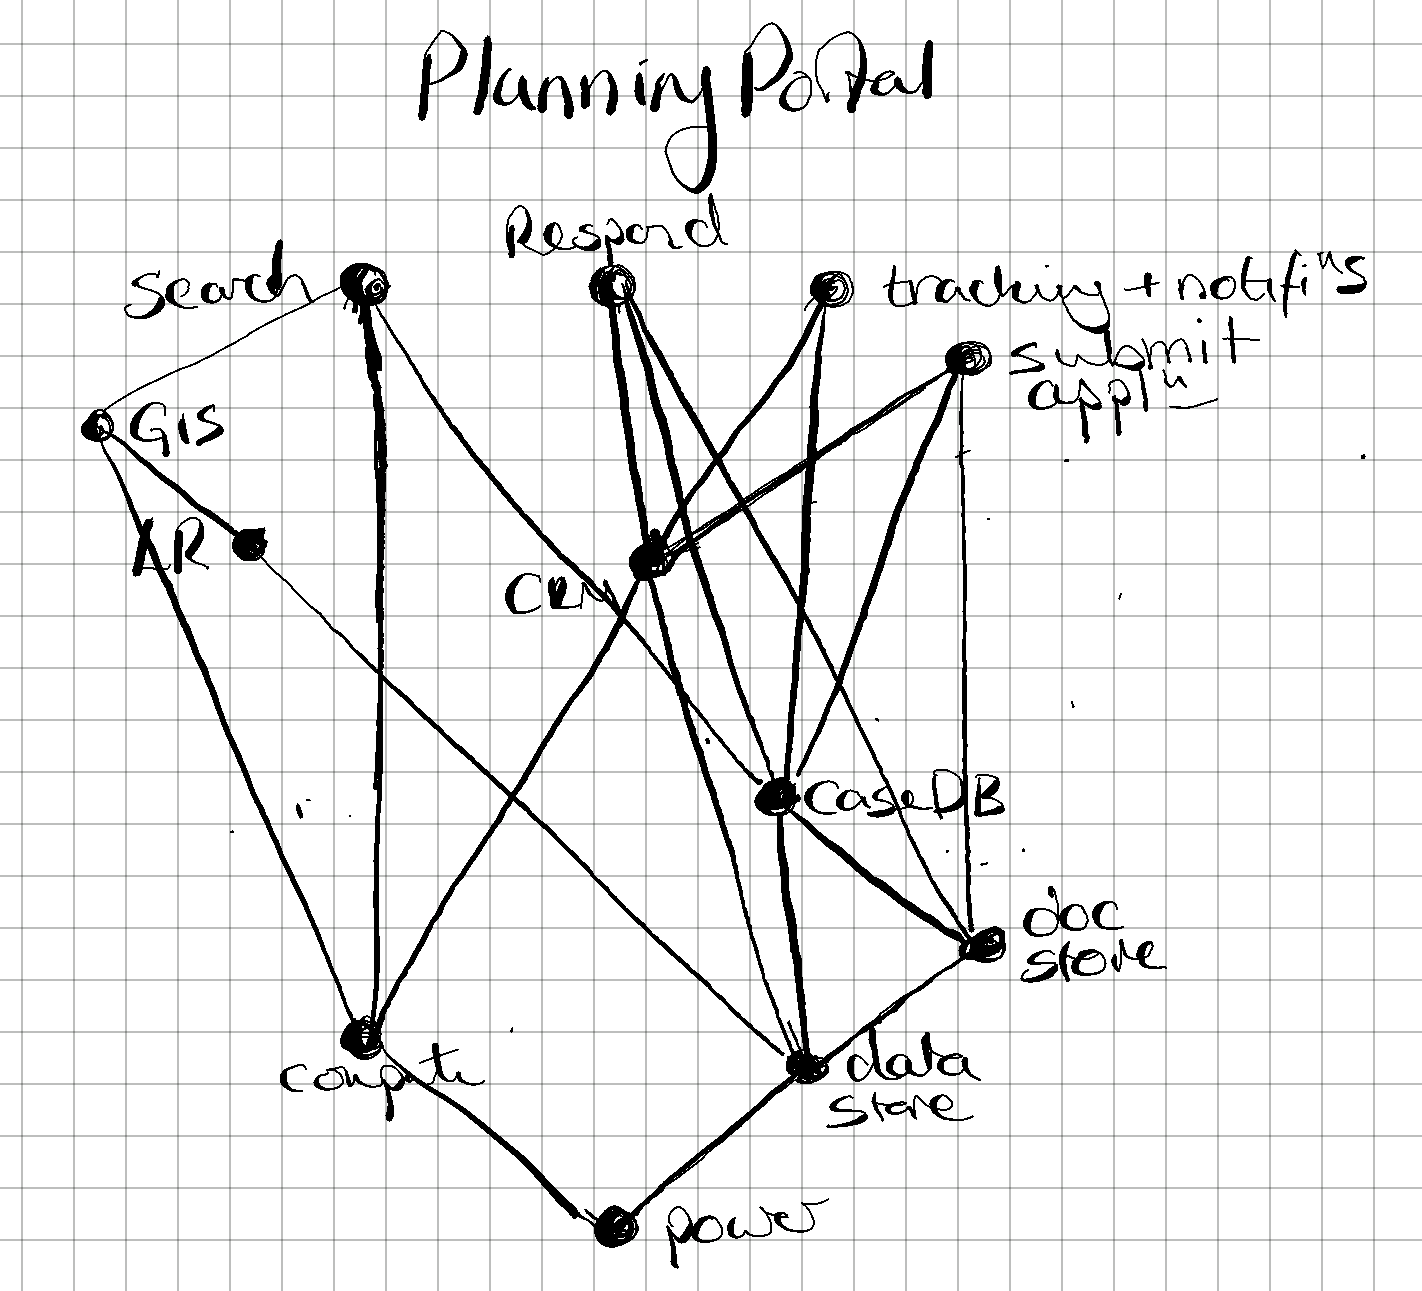 Planning Portal
Respond
Search
tracking + notifiⁿs
submit
applⁿ
GIS
AR
CRM
CaseDB
doc
store
compute
data
store
power